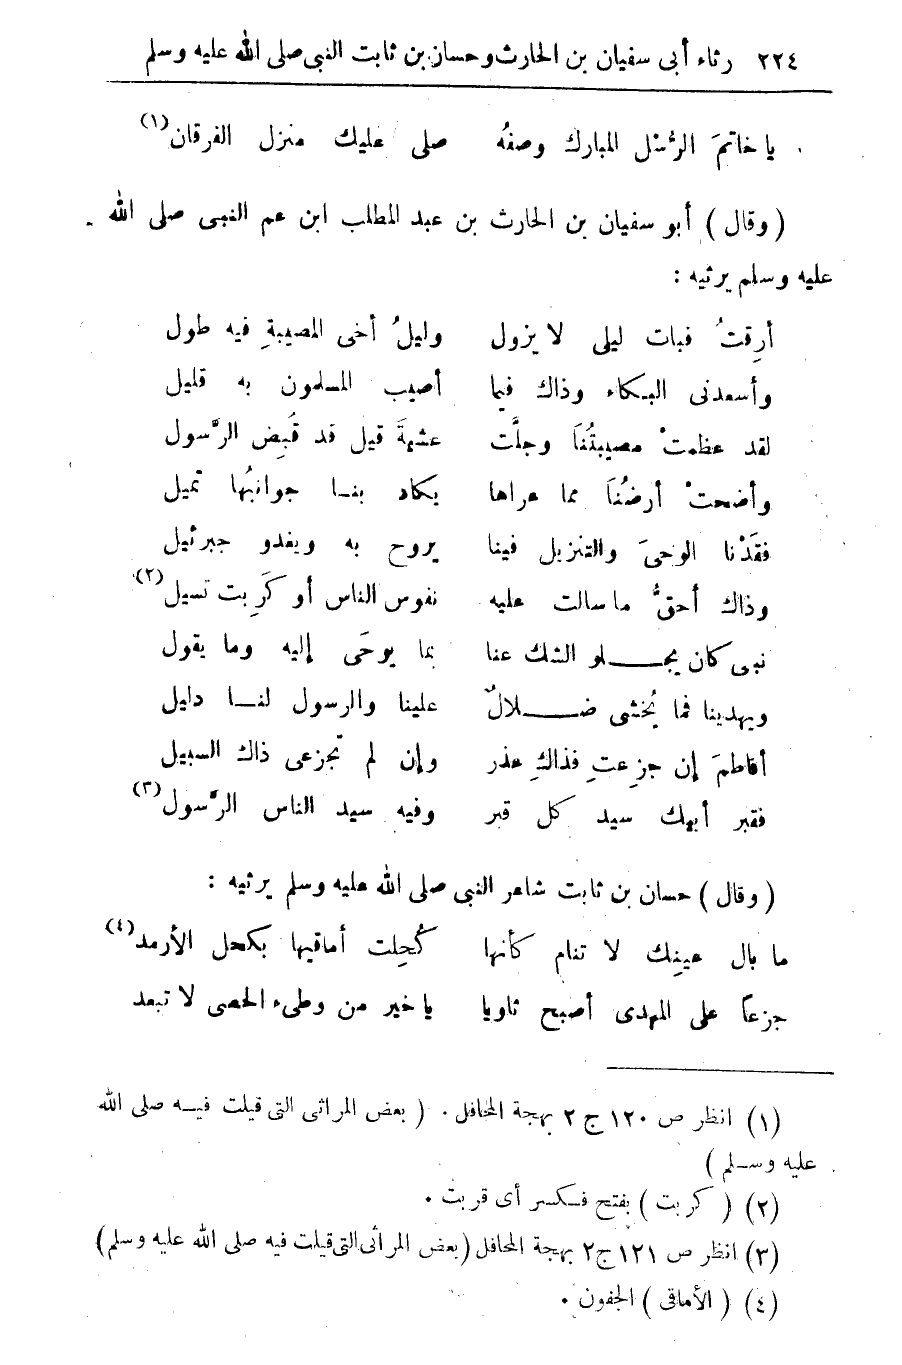 ٢٢٤ رثاء أبى سفيان بن الحارث وحسان بن ثابت النبى صلى الله عليه وسلم
يا خاتمَ الرُسْل المبارك وصفهُ صلى عليك منزل الفرقان (١)
( وقال ) أبو سفيان بن الحارث بن عبد المطلب ابن عم النبى صلى الله
عليه وسلم يرثيه :
أرِقتُ فبات ليلى لا يزول وليلُ أخى المصيبةِ فيه طول
وأسعدنى البكاء وذاك فيما أصيب المسلمون به قليل
لقد عظمتْ مصيبتُنَا وجلَّت عشيةَ قيل قد قُبِض الرَّسول
وأضحتْ أرضُنَا مما عراها يكاد بنا جوانبُها تميل
فقَدْنا الوحىَ والتنزيل فينا يروح به ويغدو جبرئيل
وذاك أحقُّ ما سالت عليه نفوس الناس أو كَرِبت تسيل (٢)
نبى كان يجلو الشك عنا بما يوحَى إليه وما يقول
ويهدينا فما يُخشى ضلالٌ علينا والرسول لنا دليل
أفاطمَ إن جزِعتِ فذاكِ عذر وإن لم تجزعى ذاك السبيل
فقبر أبيك سيد كل قبر وفيه سيد الناس الرَّسول (٣)
( وقال ) حسان بن ثابت شاعر النبى صلى الله عليه وسلم يرثيه :
ما بال عينِك لا تنام كأنها كُحِلت أماقيها بكحل الأرمد (٤)
جزعاً على المهدى أصبح ثاويا يا خير من وطىء الحصى لا تبعد
(١) انظر ص ١٢٠ ج ٢ بهجة المحافل . ( بعض المراثى التى قيلت فيه صلى الله
عليه وسلم )
(٢) ( كربت ) بفتح فكسر أى قربت .
(٣) انظر ص ١٢١ ج ٢ بهجة المحافل ( بعض المراثى التى قيلت فيه صلى الله عليه وسلم )
(٤) ( الأماقى ) الجفون .